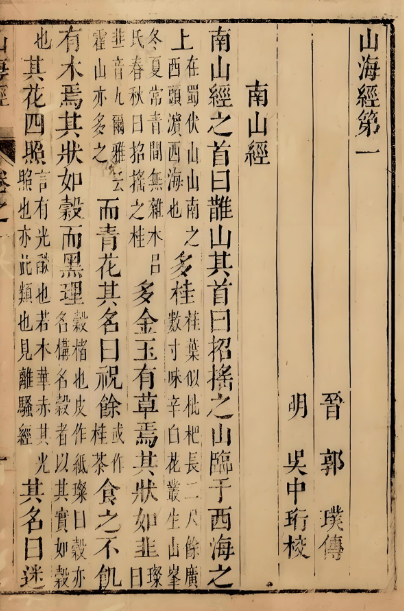 山海經第一
晉郭璞傳
明吳中珩校
南山經
南山經之首曰䧿山其首曰招搖之山臨于西海之
上在蜀伏山山南之西頭濱西海也多桂桂葉似枇杷長二尺餘廣數寸味辛白花叢生山峯
冬夏常青間無雜木呂氏春秋曰招搖之桂多金玉有草焉其狀如韭璨曰
韭音九爾雅云霍山亦多之而青花其名曰祝餘或作桂荼食之不飢
有木焉其狀如榖而黑理榖楮也皮作紙璨曰榖亦名構名榖者以其實如榖
也其花四照言有光燄也若木華赤其光照也亦此類也見離騷經其名曰迷
山海經
卷之